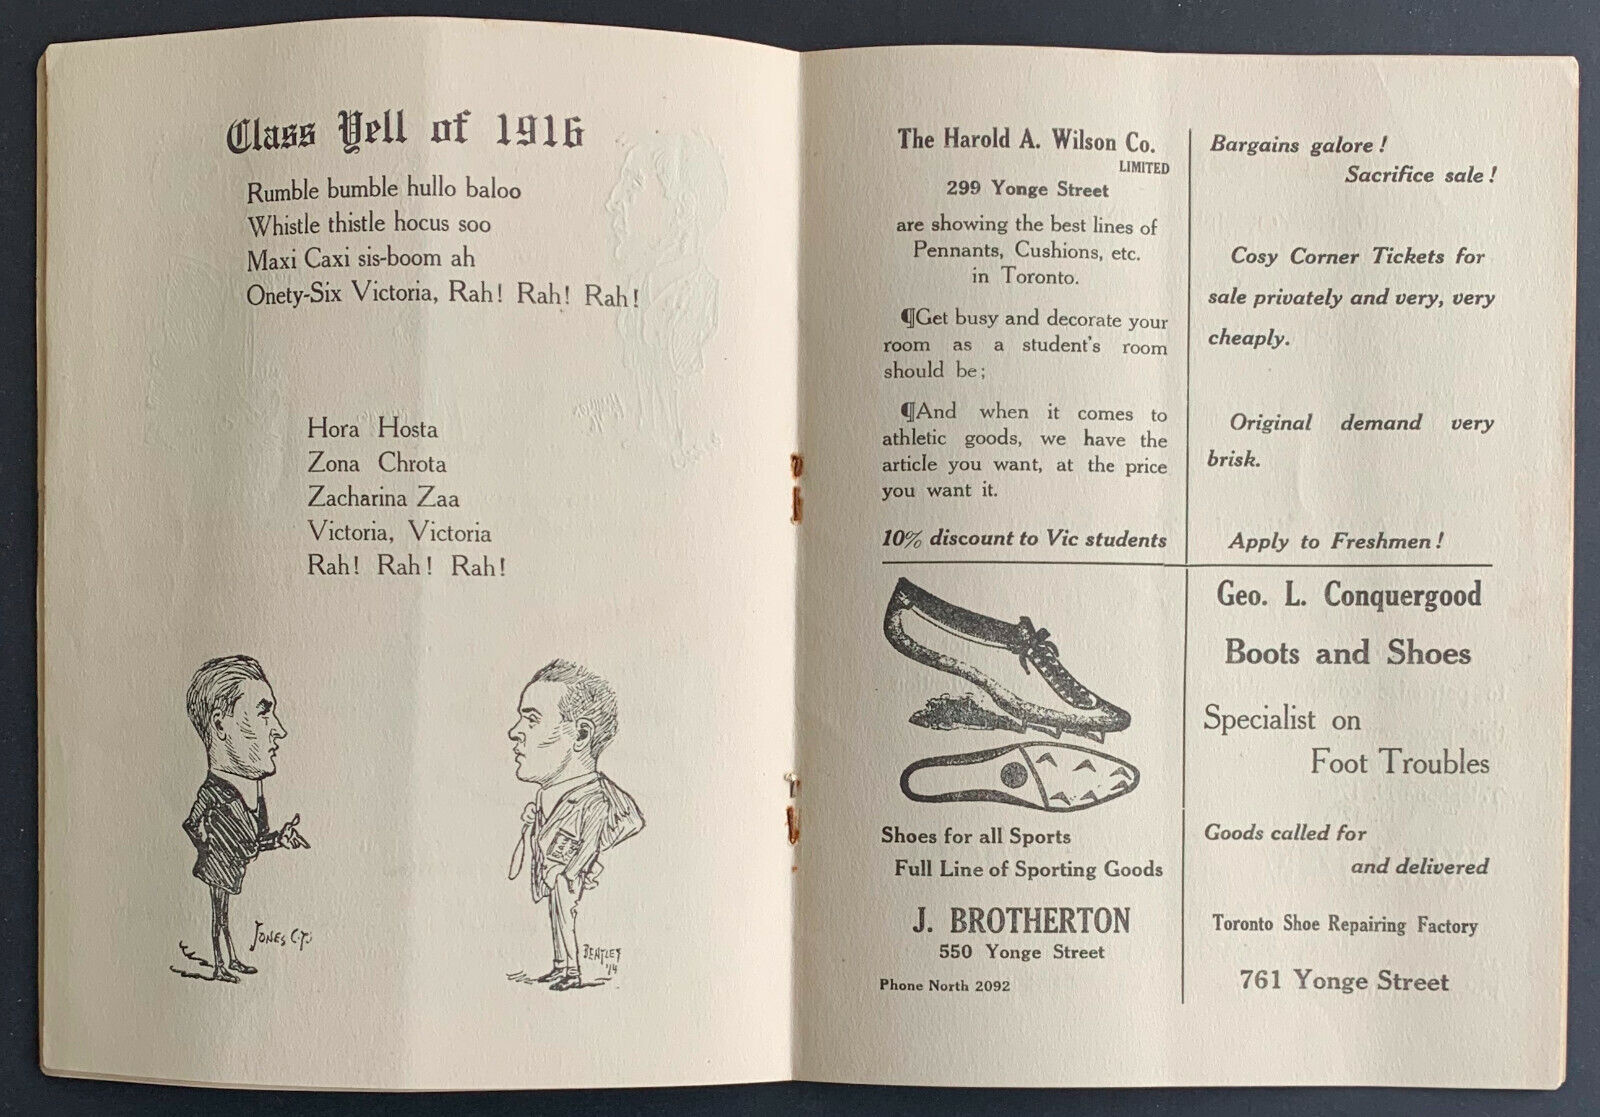 Class Yell of 1916
Rumble bumble hullo baloo
Whistle thistle hocus soo
Maxi Caxi sis-boom ah
Onety-Six Victoria, Rah! Rah! Rah!
Hora Hosta
Zona Chrota
Zacharina Zaa
Victoria, Victoria
Rah! Rah! Rah!
JONES C.T.
NAW
BENTLEY
'14
The Harold A. Wilson Co.
LIMITED
299 Yonge Street
are showing the best lines of
Pennants, Cushions, etc.
in Toronto.
¶Get busy and decorate your
room as a student's room
should be;
¶And when it comes to
athletic goods, we have the
article you want, at the price
you want it.
10% discount to Vic students
Bargains galore!
Sacrifice sale!
Cosy Corner Tickets for
sale privately and very, very
cheaply.
Original demand very
brisk.
Apply to Freshmen!
Shoes for all Sports
Full Line of Sporting Goods
J. BROTHERTON
550 Yonge Street
Phone North 2092
Geo. L. Conquergood
Boots and Shoes
Specialist on
Foot Troubles
Goods called for
and delivered
Toronto Shoe Repairing Factory
761 Yonge Street